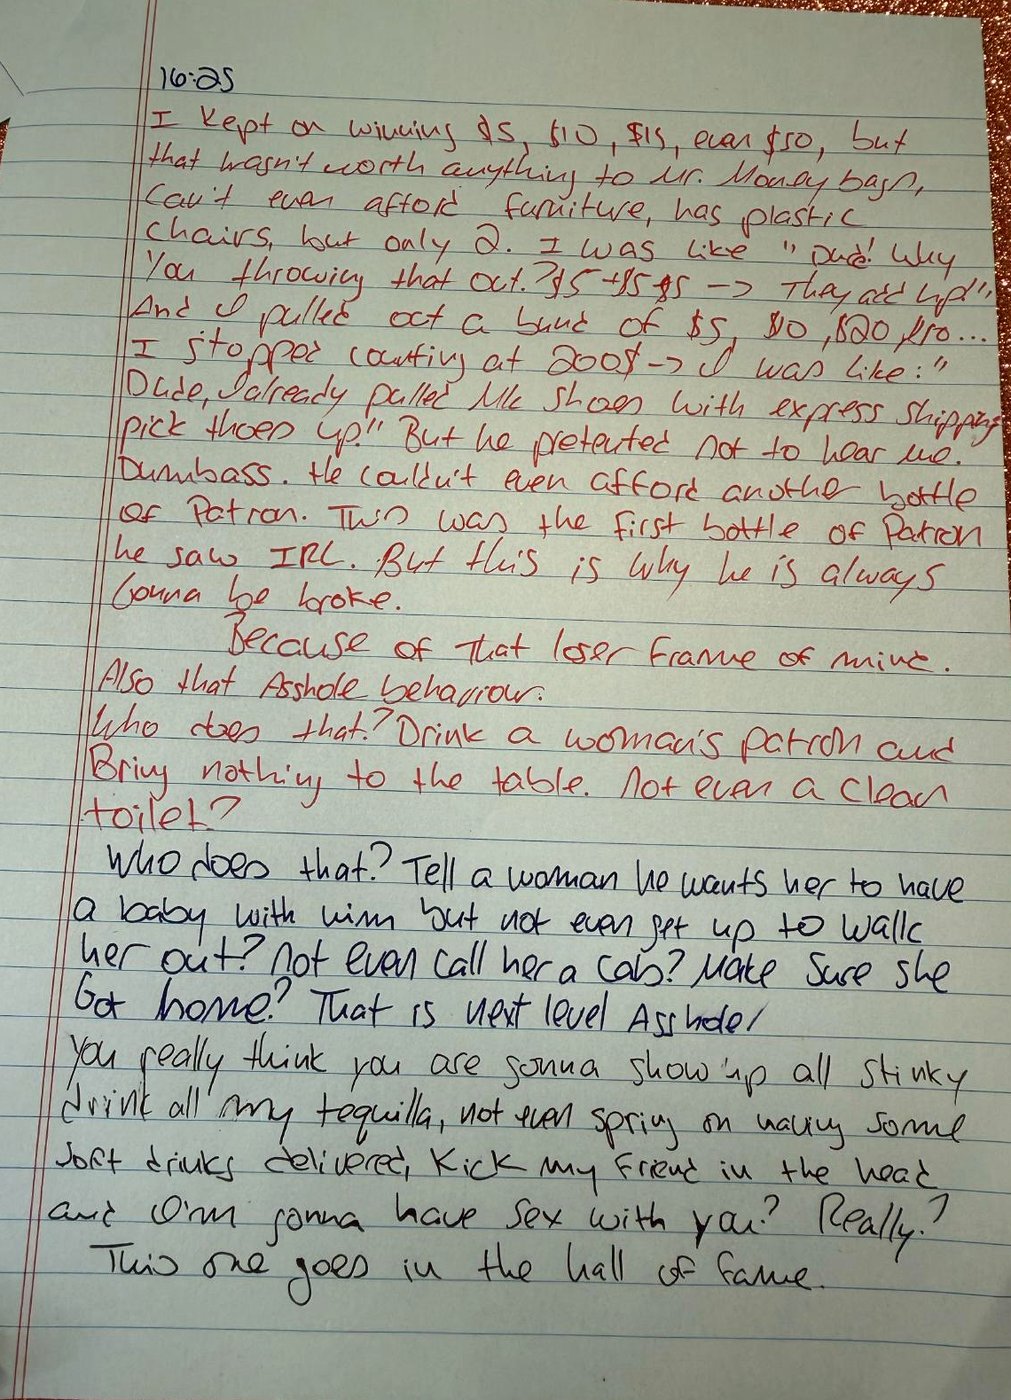 16:25
I kept on winning $5, $10, $15, even $50, but
that wasn't worth anything to Mr. Moneybags,
Can't even afford furniture, has plastic
chairs, but only 2. I was like "Dude! Why
You throwing that out? $5 + $5 $5 -> They add up!"
And I pulled out a bunc of $5, $10, $20, $10...
I stopped counting at 200$ -> I was like:"
Dude, I already pulled Mk shoes with express shipping
pick thoes up." But he pretented not to hear me.
Dumbass. He couldn't even afford another bottle
of Patron. This was the first bottle of Patron
he saw IRL. But this is why he is always
Gonna be broke.
Because of That loser frame of mind.
Also that Asshole behaviour.
Who does that? Drink a woman's patron and
Bring nothing to the table. Not even a clean
toilet?
Who does that? Tell a woman he wants her to have
a baby with him but not even get up to walk
her out? Not even call her a cab? Make sure she
Got home? That is next level Asshole!
You really think you are gonna show up all stinky
drink all my tequilla, not even spring on having some
soft drinks delivered, kick my friend in the head
and I'm gonna have sex with you? Really?
This one goes in the hall of fame.